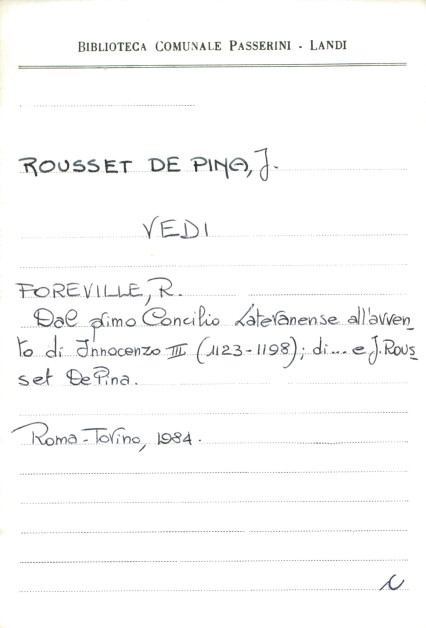 BIBLIOTECA COMUNALE PASSERINI - LANDI
ROUSSET DE PINA, J.
VEDI
FOREVILLE, R.
Dal primo Concilio Lateranense all'avven_
to di Innocenzo III (1123-1198); di... e J. Rous_
set De Pina.
Roma-Torino, 1984.